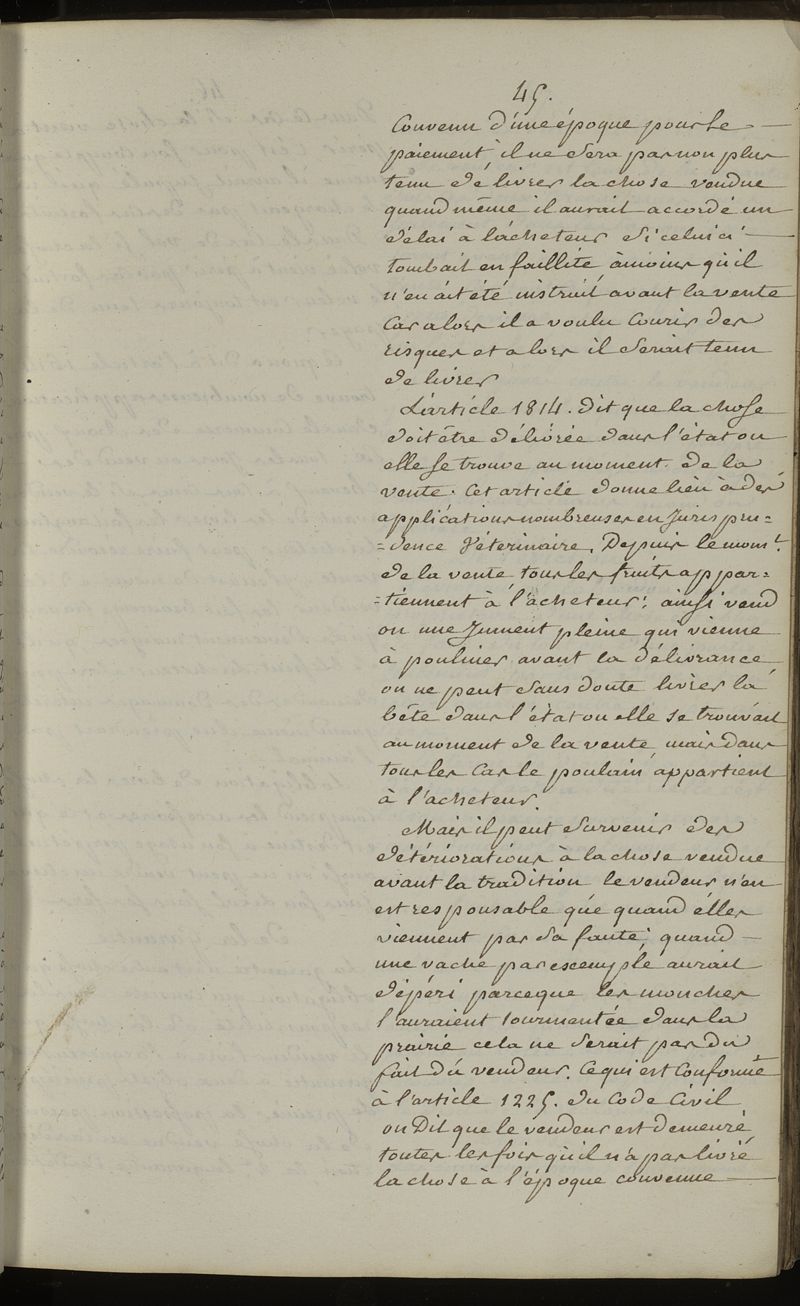 45.
Convenu d'une époque pour le
paiement, il ne sera pas non plus
tenu de livrer la chose vendue
quand même il aurait accordé un
délai à l'acheteur si celui ci
tombait en faillite, àmoins qu'il
n'en ait été instruit avant la vente
Car alors il a voulu Courir des
risques et alors il serait tenu
de livrer
L'article 1814. Dit que la chose
doit être délivrée dans l'état ou
elle se trouve au moment de la
vente. Cet article donne lieu à des
applications nombreuses en Jurispru=
=dence Véterinaire. Depuis le mom.t
de la vente tous les fruits appar=
=tiennent à l'acheteur; ainsi vend
on une Jument pleine qui vienne
à pouliner avant la délivrance,
on ne peut sans doute livrer la
bête dans l'état ou elle se trouvait
au moment de la vente, mais dans
tous les Cas le poulain appartient
à l'acheteur.
Mais il peut survenir des
détériorations à la chose vendue
avant la tradition, le vendeur n'en
est responsable que quand elles
viennent par sa faute; quand
une vache par escemple aurait
dépéri parceque les mouches
l'auraient tourmentée dans la
prairie cela ne serait pas du
fait du vendeur. Ce qui est Conforme
à l'article 1225. du Code Civil
on Dit que le vendeur est demeuré
toutes les fois qu'il n'a pas livré
la chose à l'époque convenue